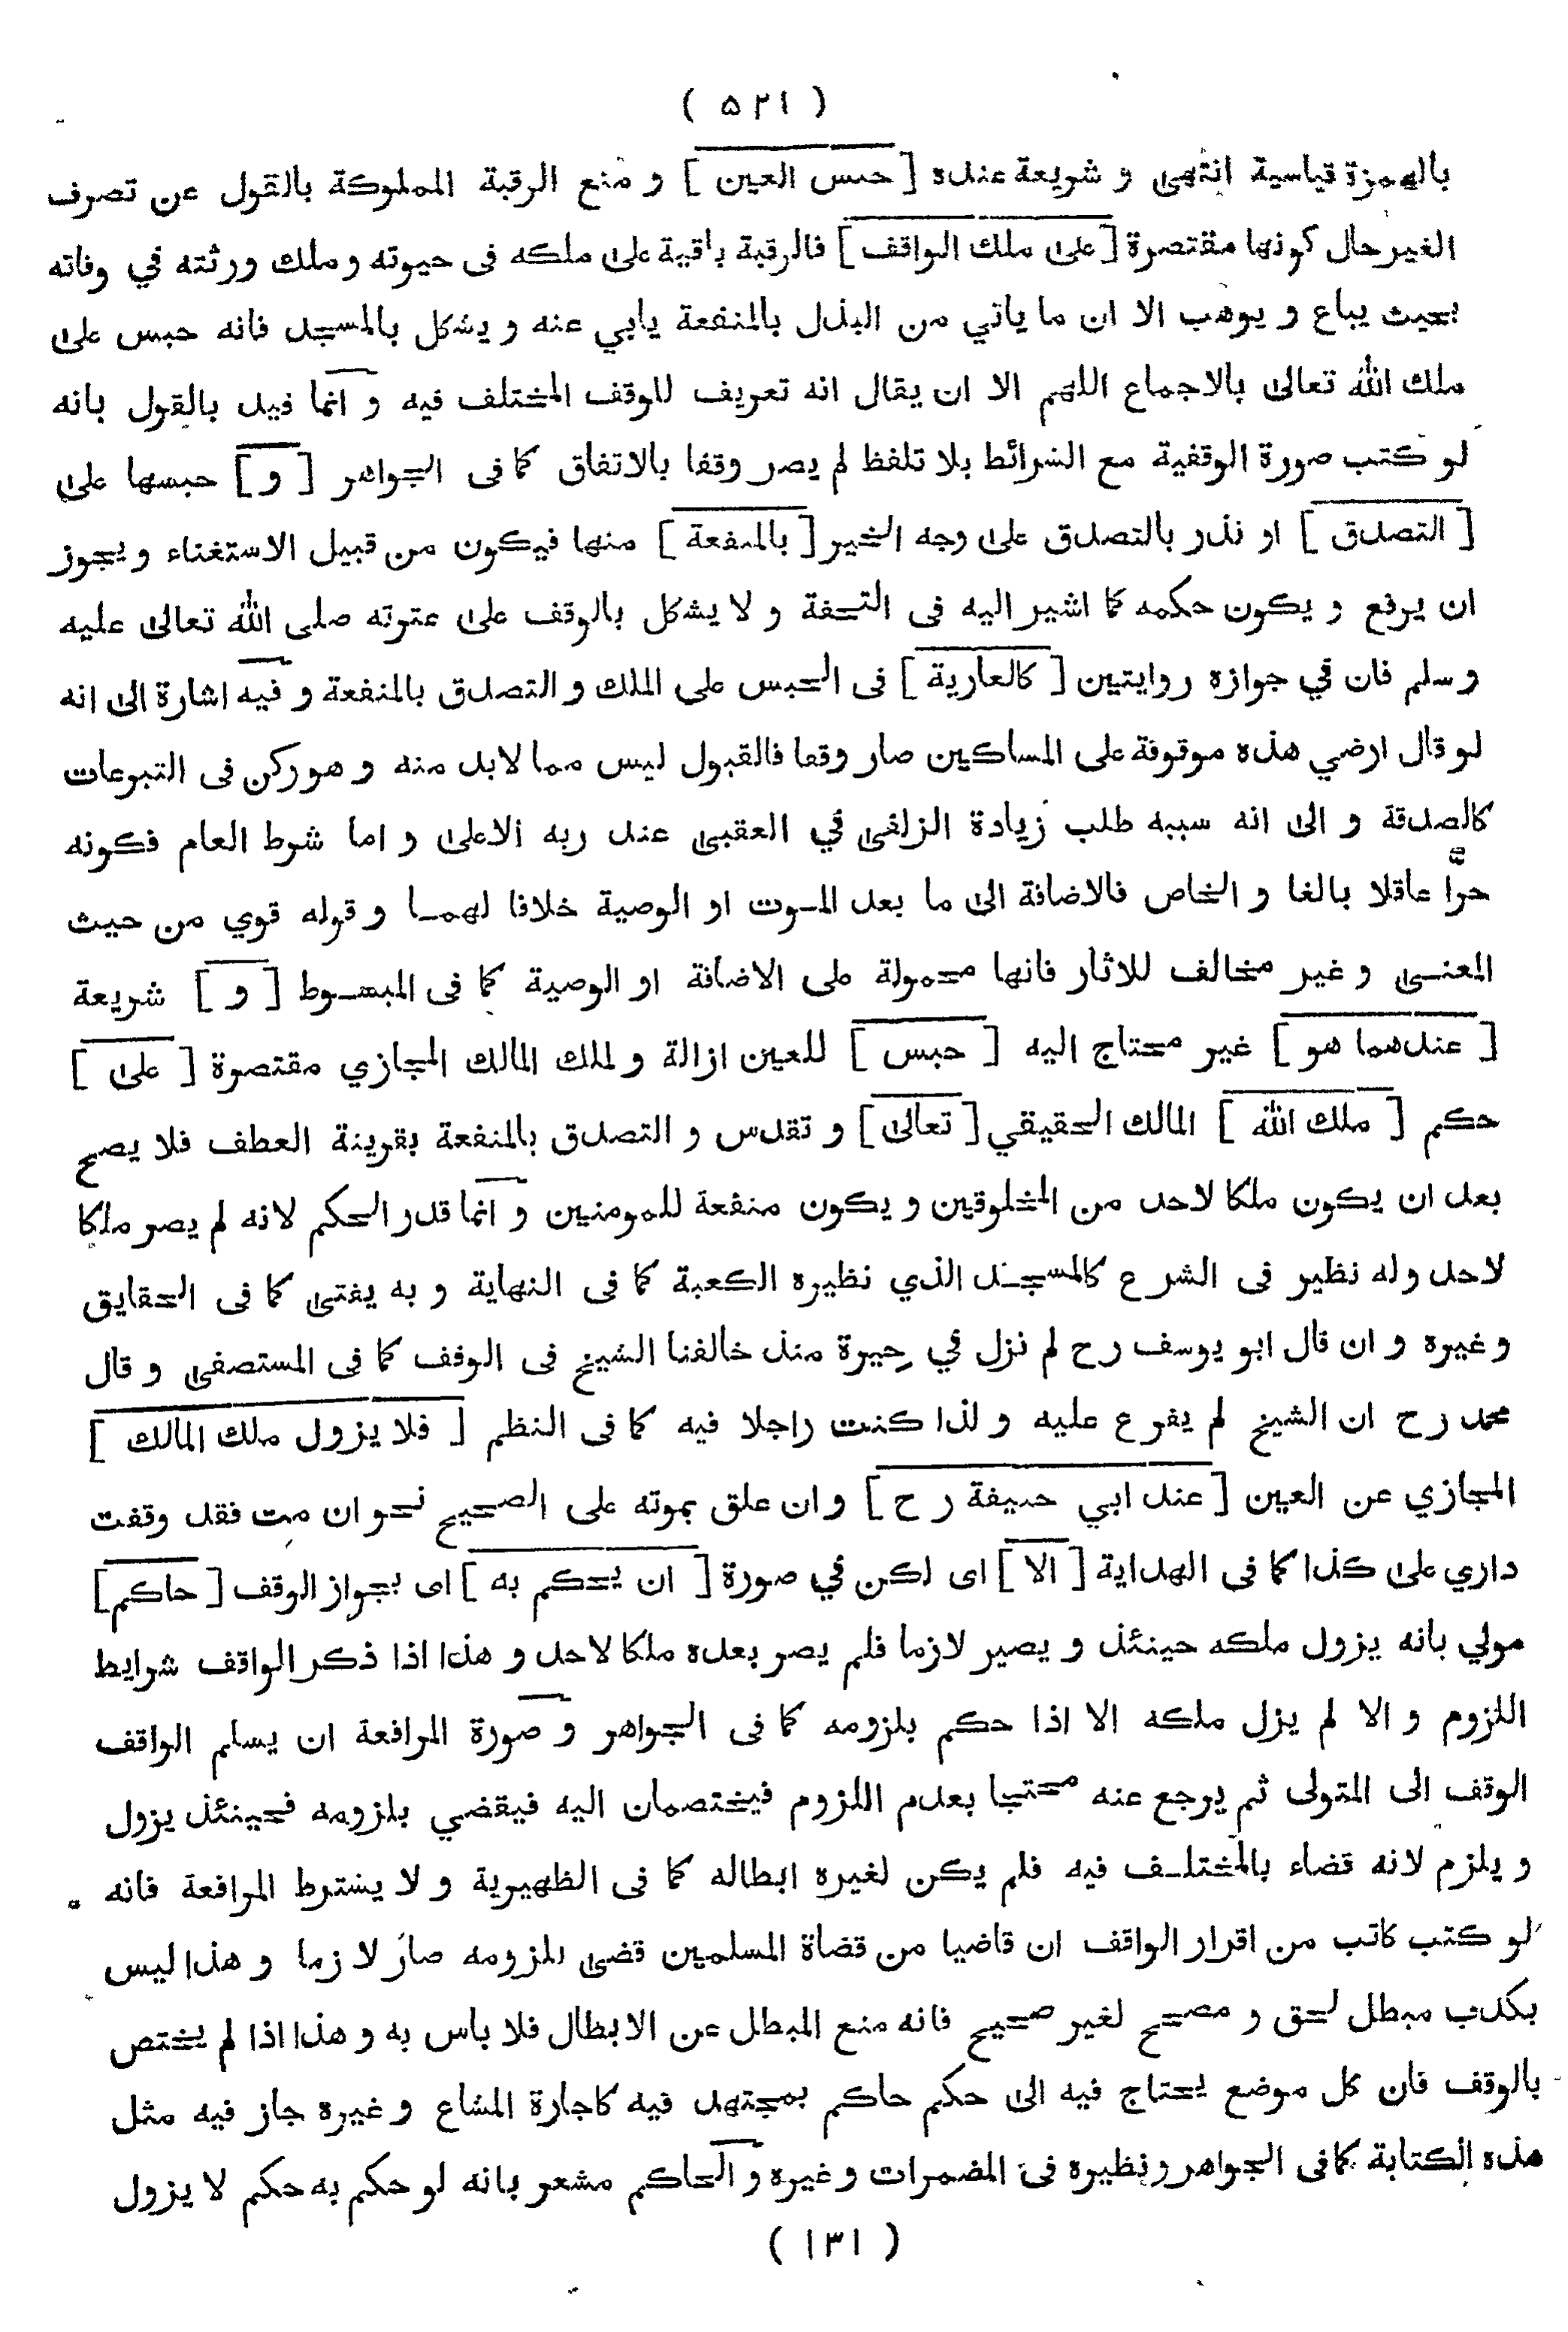 ( ٥٢١ )
بالهمزة قياسية انتهى و شريعة عنده [ حبس العين ] و منع الرقبة المملوكة بالقول عن تصرف
الغير حال كونها مقتصرة [ على ملك الواقف ] فالرقبة باقية على ملكه فى حيوته و ملك ورثته في وفاته
بحيث يباع و يوهب الا ان ما ياتي من البذل بالمنفعة يابي عنه و يشكل بالمسجد فانه حبس على
ملك الله تعالى بالاجماع اللهم الا ان يقال انه تعريف للوقف المختلف فيه و انما قيد بالقول بانه
لو كتب صورة الوقفية مع الشرائط بلا تلفظ لم يصر وقفا بالاتفاق كما فى الجواهر [ و ] حبسها على
[ التصدق ] او نذر بالتصدق على وجه الخير [ بالمنفعة ] منها فيكون من قبيل الاستغناء و يجوز
ان يرفع و يكون حكمه كما اشير اليه فى التحفة و لا يشكل بالوقف على عترته صلى الله تعالى عليه
و سلم فان في جوازه روايتين [ كالعارية ] فى الحبس على الملك و التصدق بالمنفعة و فيه اشارة الى انه
لو قال ارضي هذه موقوفة على المساكين صار وقفا فالقبول ليس مما لابد منه و هو ركن فى التبرعات
كالصدقة و الى انه سببه طلب زيادة الزلفى في العقبى عند ربه الاعلى و اما شرط العام فكونه
حرّا عاقلا بالغا و الخاص فالاضافة الى ما بعد الموت او الوصية خلافا لهما و قوله قوي من حيث
المعنى و غير مخالف للاثار فانها محمولة على الاضافة او الوصية كما فى المبسوط [ و ] شريعة
[ عندهما هو ] غير محتاج اليه [ حبس ] للعين ازالة و لملك المالك المجازي مقتصرة [ على ]
حكم [ ملك الله ] المالك الحقيقي [ تعالى ] و تقدس و التصدق بالمنفعة بقرينة العطف فلا يصح
بعد ان يكون ملكا لاحد من المخلوقين و يكون منفعة للمومنين و انما قدر الحكم لانه لم يصر ملكا
لاحد وله نظير فى الشرع كالمسجد الذي نظيره الكعبة كما فى النهاية و به يفتى كما فى الحقايق
و غيره و ان قال ابو يوسف رح لم نزل في حيرة منذ خالفنا الشيخ فى الوقف كما فى المستصفى و قال
محمد رح ان الشيخ لم يفرع عليه و لذا كنت راجلا فيه كما فى النظم [ فلا يزول ملك المالك ]
المجازي عن العين [ عند ابي حنيفة رح ] و ان علق بموته على الصحيح نحو ان مت فقد وقفت
داري على كذا كما فى الهداية [ الا ] اى لكن في صورة [ ان يحكم به ] اى بجواز الوقف [ حاكم ]
مولي بانه يزول ملكه حينئذ و يصير لازما فلم يصر بعده ملكا لاحد و هذا اذا ذكر الواقف شرايط
اللزوم و الا لم يزل ملكه الا اذا حكم بلزومه كما فى الجواهر و صورة المرافعة ان يسلم الواقف
الوقف الى المتولى ثم يرجع عنه محتجا بعدم اللزوم فيختصمان اليه فيقضي بلزومه فحينئذ يزول
و يلزم لانه قضاء بالمختلف فيه فلم يكن لغيره ابطاله كما فى الظهيرية و لا يشترط المرافعة فانه
لو كتب كاتب من اقرار الواقف ان قاضيا من قضاة المسلمين قضى بلزومه صار لازما و هذا ليس
بكذب مبطل لحق و مصحح لغير صحيح فانه منع المبطل عن الابطال فلا باس به و هذا اذا لم يختص
بالوقف فان كل موضع يحتاج فيه الى حكم حاكم بمجتهد فيه كاجارة المشاع و غيره جاز فيه مثل
هذه الكتابة كما فى الجواهر و نظيره فى المضمرات و غيره و الحاكم مشعر بانه لو حكم به حكم لا يزول
( ١٣١ )